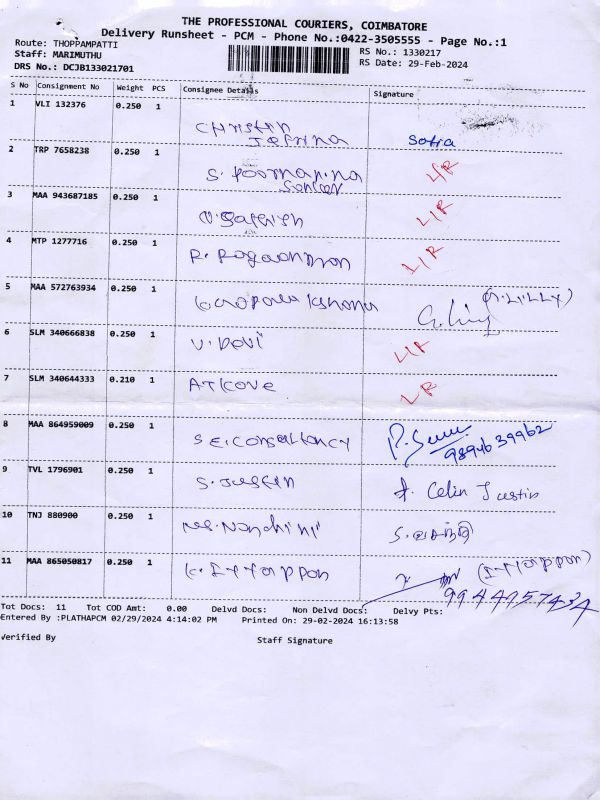 THE PROFESSIONAL COURIERS, COIMBATORE
Delivery Runsheet - PCM - Phone No.:0422-3505555 - Page No.:1
Route: THOPPAMPATTI
Staff: MARIMUTHU RS No.: 1330217
DRS No.: DCJB133021701 RS Date: 29-Feb-2024
S No Consignment No Weight PCS Consignee Details Signature
1 VLI 132376 0.250 1
Christin
Jerina Sofia
2 TRP 7658238 0.250 1
S. L/R
3 MAA 943687185 0.250 1
V. Sathish L/R
4 MTP 1277716 0.250 1
R. L/R
5 MAA 572763934 0.250 1
(A. LILLY)
6 SLM 340666838 0.250 1
V. Devi L/R
7 SLM 340644333 0.210 1
ATCOVE LR
8 MAA 864959009 0.250 1
S E. Consultancy
9894639962
9 TVL 1796901 0.250 1
S. Justin A. Celin Justin
10 TNJ 880900 0.250 1
Nandhini S. வசந்தி
11 MAA 865050817 0.250 1
K. ITTOOPPON (ITTOOPPON)
9944757434
Tot Docs: 11 Tot COD Amt: 0.00 Delvd Docs: Non Delvd Docs: Delvy Pts:
Entered By :PLATHAPCM 02/29/2024 4:14:02 PM Printed On: 29-02-2024 16:13:58
Verified By Staff Signature